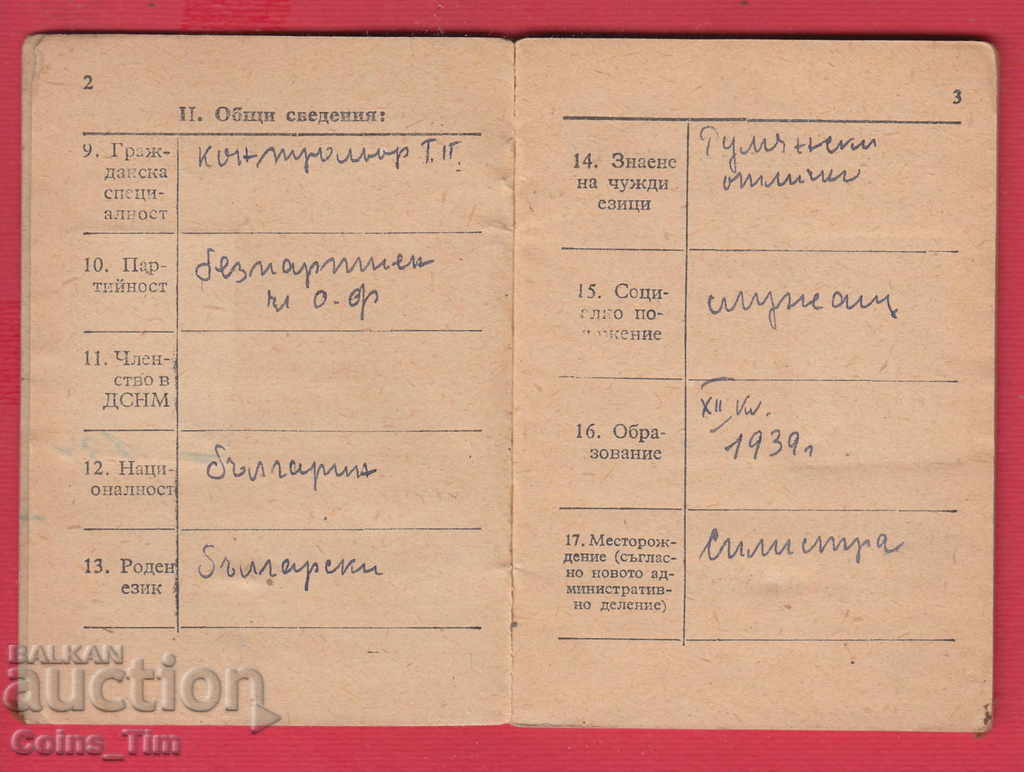 2
II. Общи сведения:
9. Граж-
данска
специ-
алност
контрольор Т.П.
10. Пар-
тийност
безпартиен
чл О.Ф
11. Член-
ство в
ДСНМ
12. Наци-
оналност
българин
13. Роден
език
български
3
14. Знаене
на чужди
езици
Румънски
отлично
15. Соци-
ално по-
ложение
служещ
16. Обра-
зование
XII кл.
1939г
17. Месторож-
дение (съглас-
но новото ад-
министратив-
но деление)
Силистра
BALKAN
auction
Coins_Tim